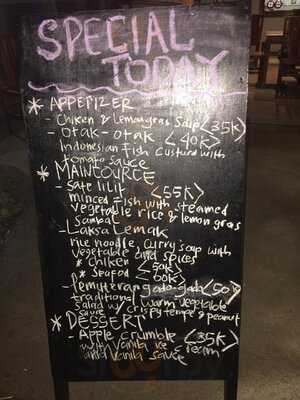 SPECIAL
TODAY
* APPETIZER
- Chiken & Lemongras Soup <35K>
- Otak-otak <40K>
Indonesian Fish Custurd with
tomato Sauce
* MAINCOURCE
- Sate lilit <55K>
minced fish with steamed
vegetable rice & lemon gras
Sambal
- Laksa Lemak
rice noodle, Curry Soup with
vegetable and spices
* Chiken <50K>
* Seafood <60K>
- Pemuteran gado-gado <50K>
traditional warm vegetable
salad w/ crispy tempe & peanut
sauce
* DESSERT
- Apple crumble <35K>
with Vanila Ice cream
and Vanila Sauce